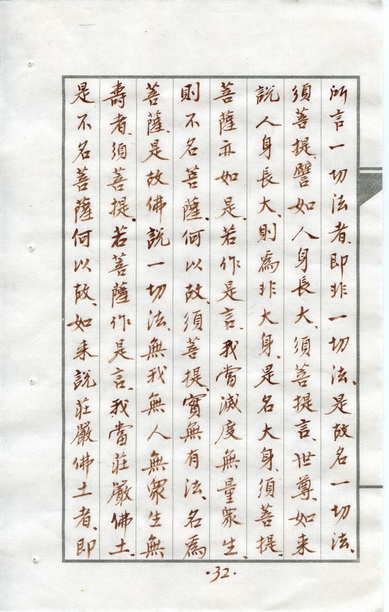 所言一切法者、即非一切法、是故名一切法、
須菩提、譬如人身長大、須菩提言、世尊、如来
說人身長大、則為非大身、是名大身、須菩提、
菩薩亦如是、若作是言、我當滅度無量衆生、
則不名菩薩、何以故、須菩提、實無有法、名為
菩薩、是故佛說一切法、無我無人無衆生無
壽者、須菩提、若菩薩作是言、我當莊嚴佛土、
是不名菩薩、何以故、如来說莊嚴佛土者、即
·32·